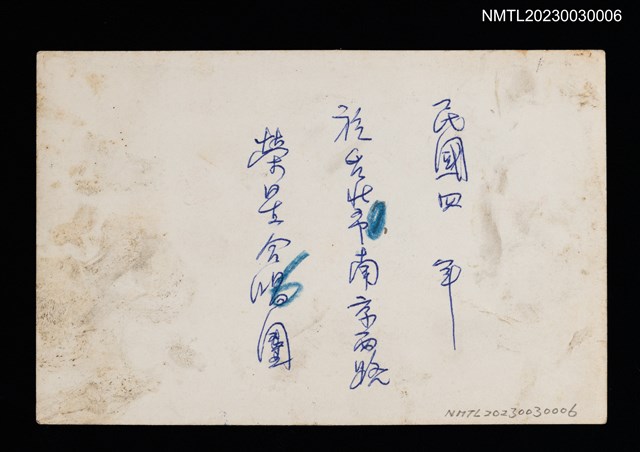 NMTL20230030006
民國四 年
於台北市南京西路
榮星合唱團
NMTL20230030006